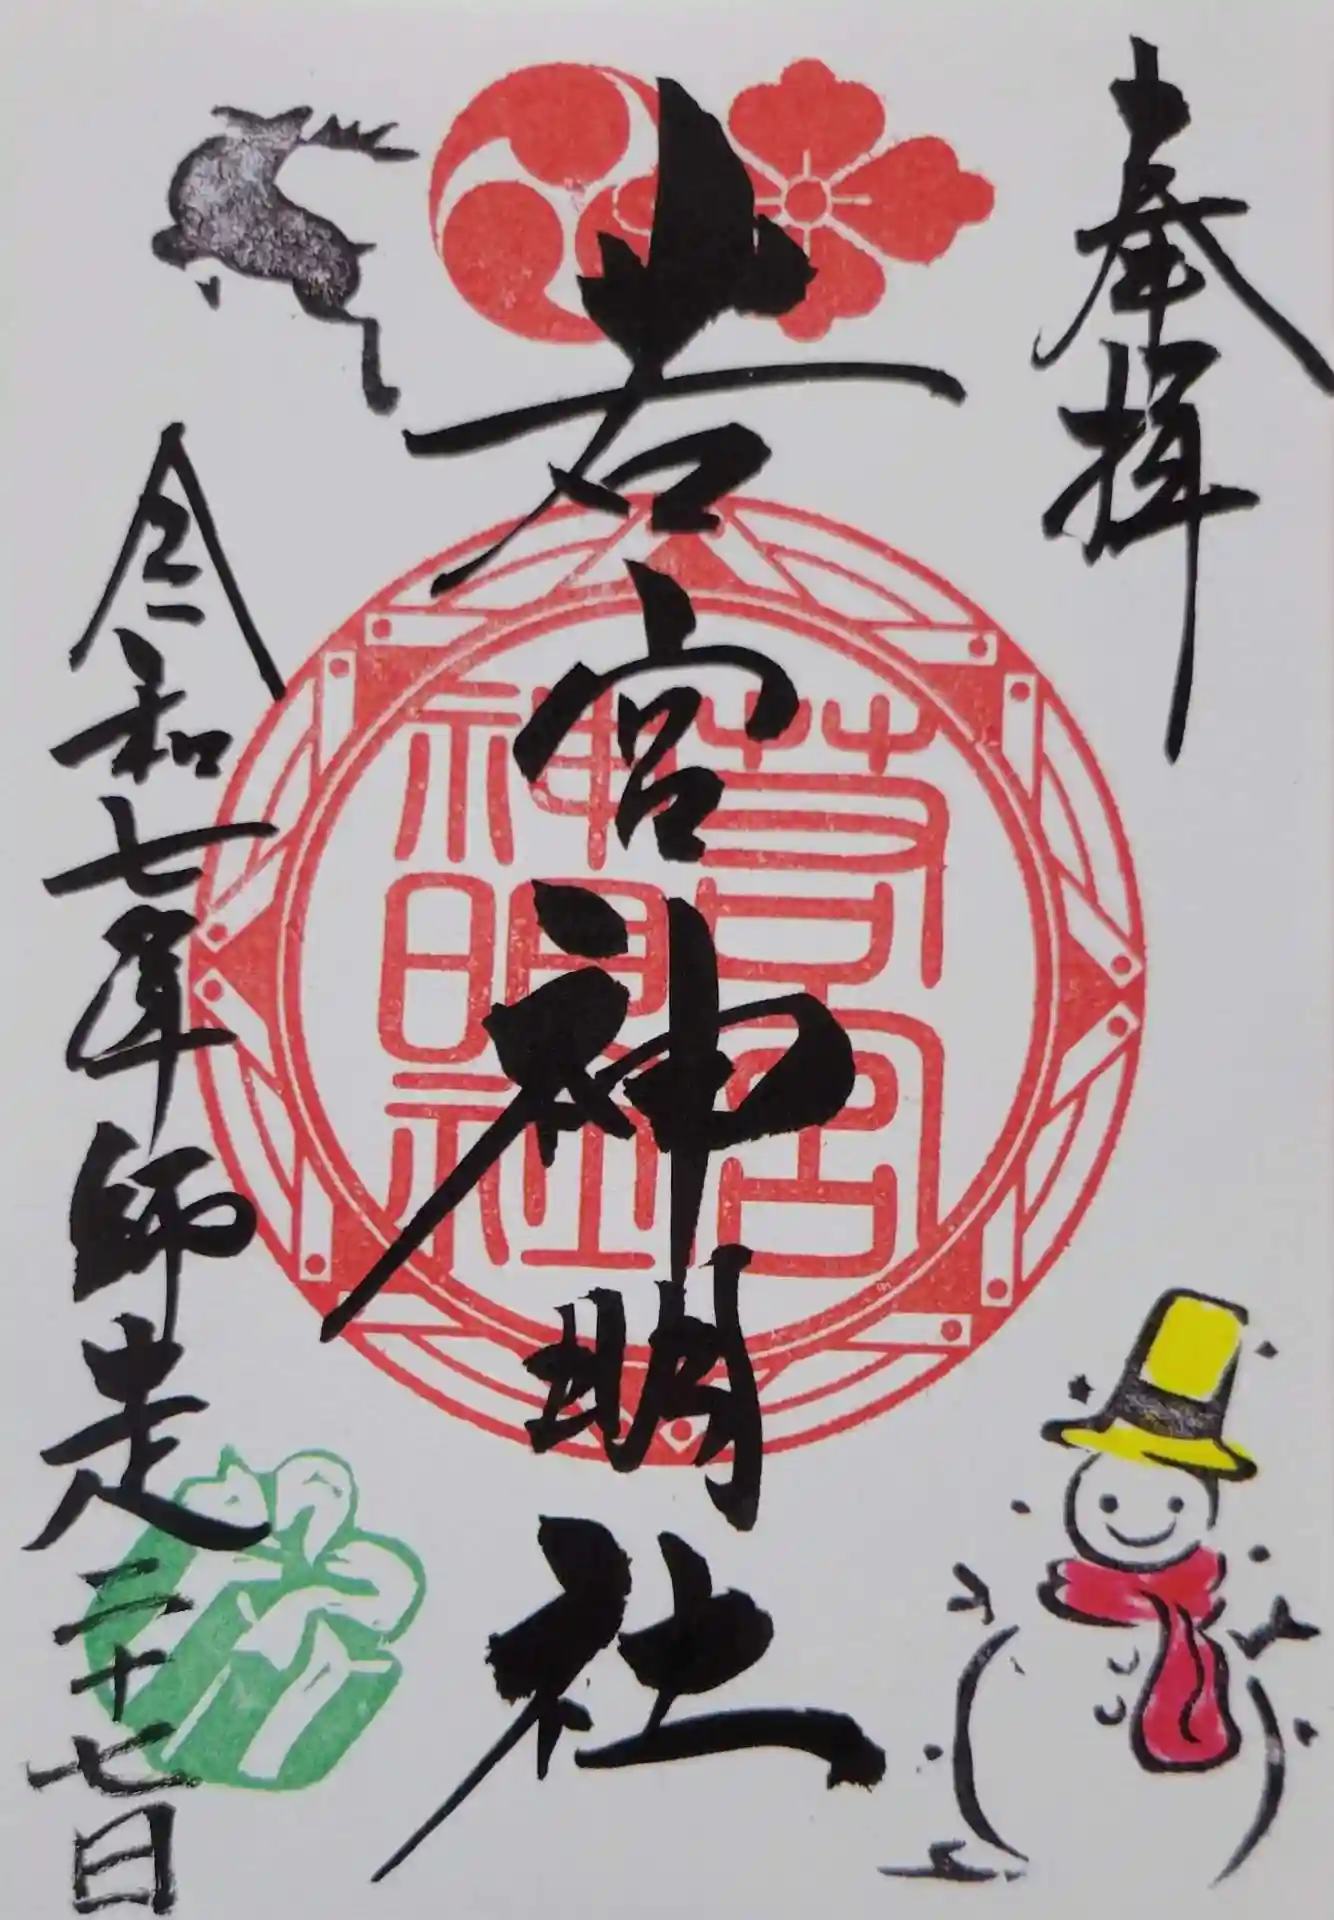 奉拝
若宮神明社
若宮
神明社
令和七年師走二十七日